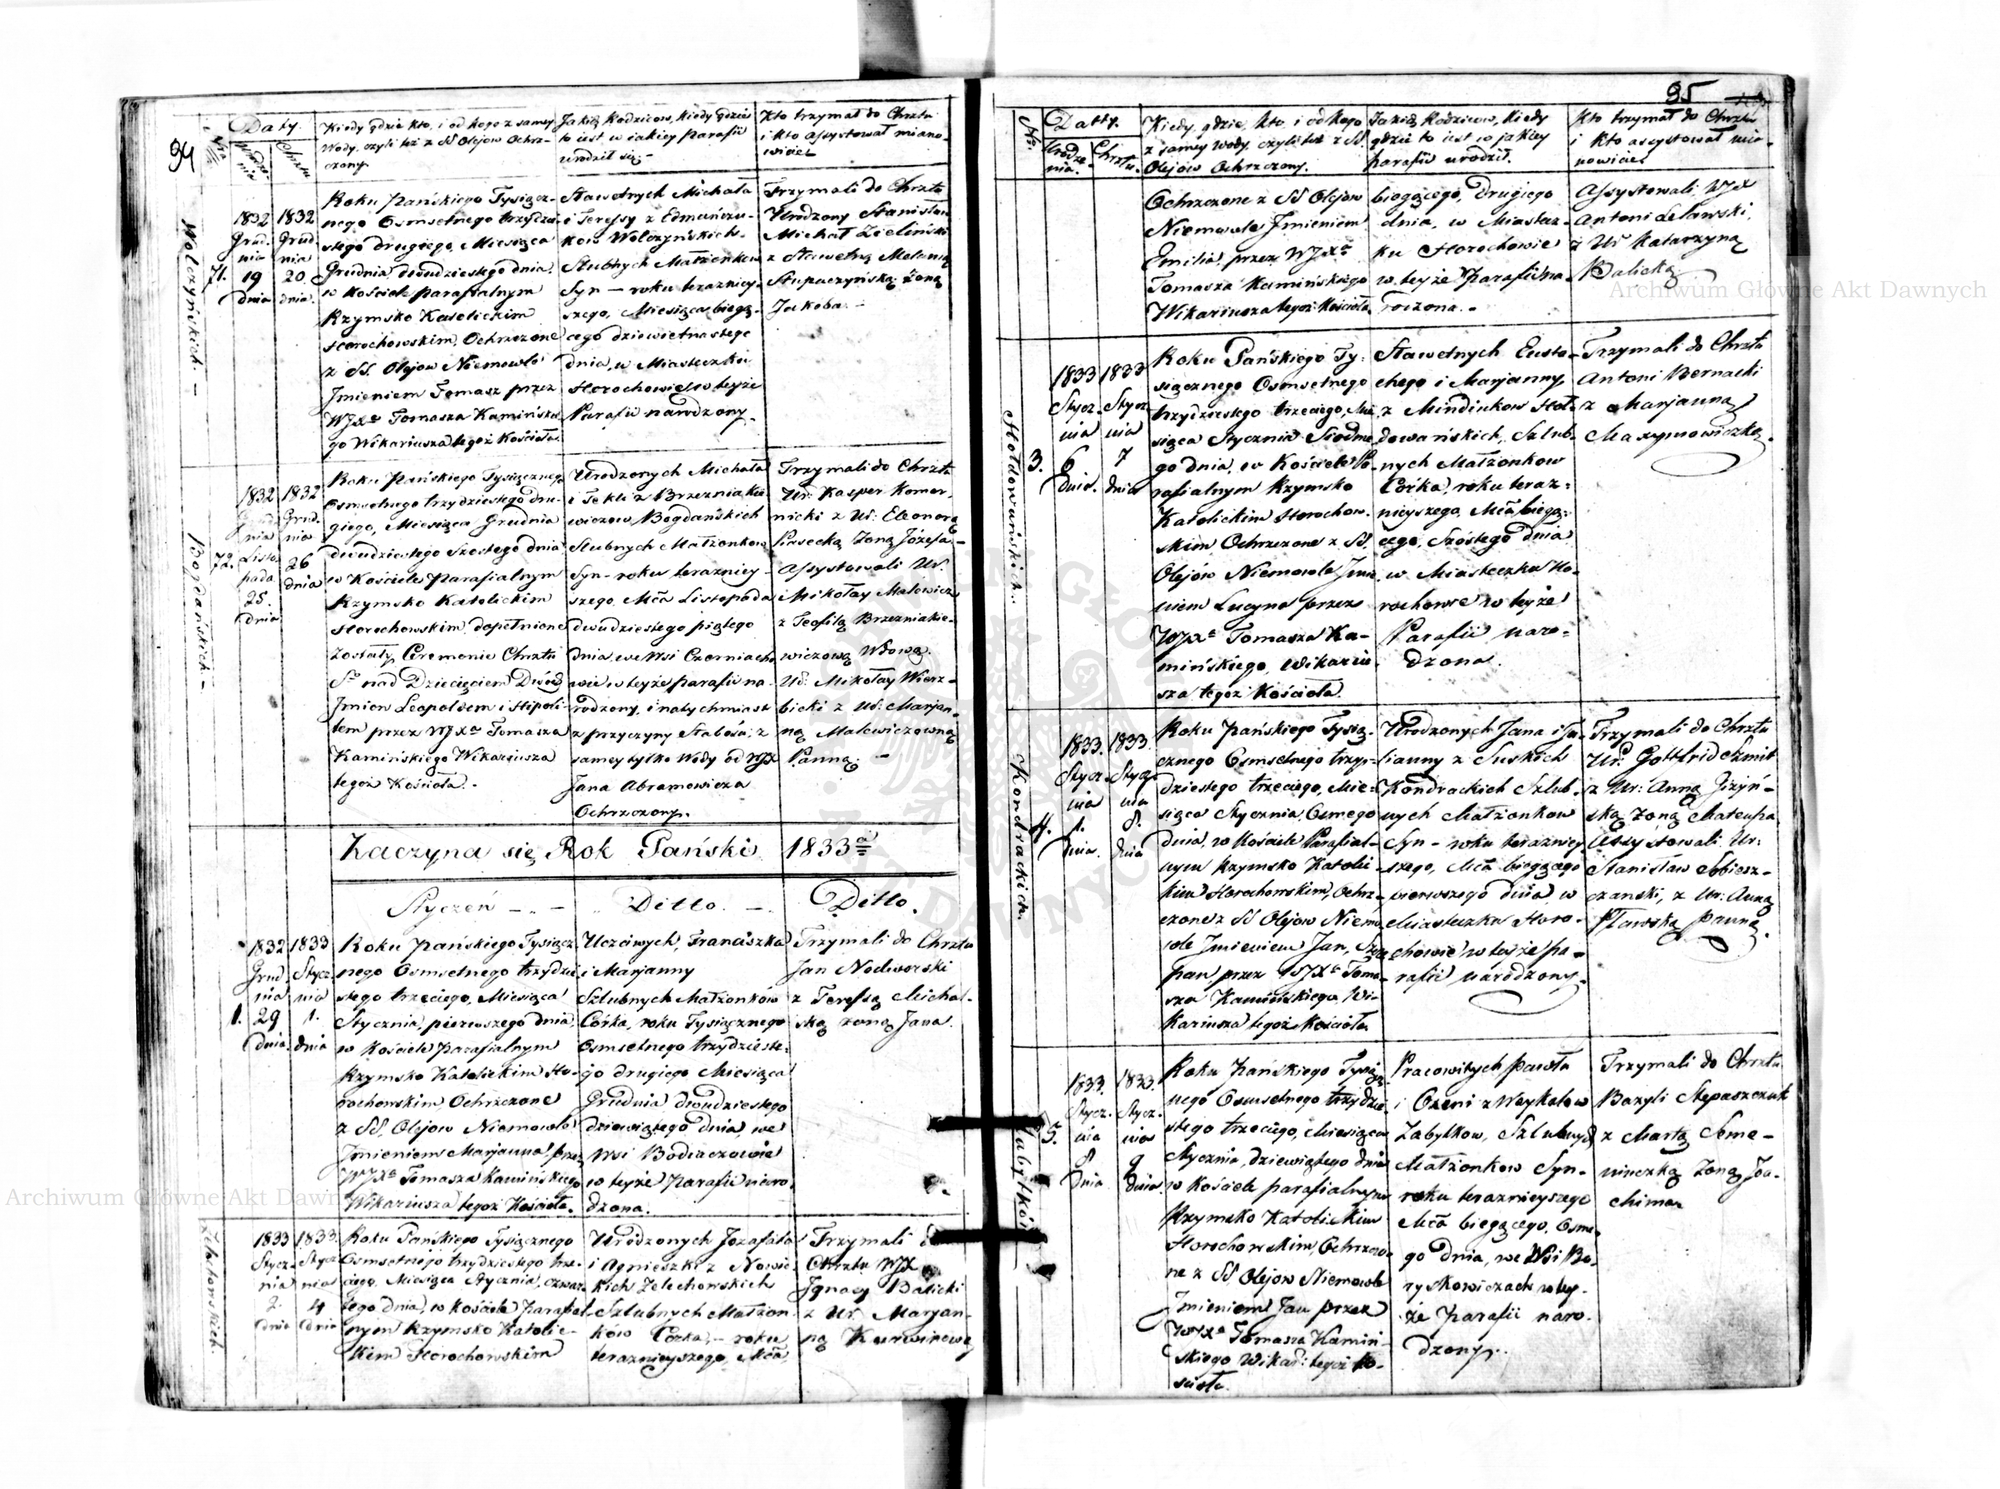 94
Nr
Daty.
Urodze-
nia
Chrztu
Kiedy gdzie kto, i od kogo z samey
Wody, czyli też z SS Olejow Ochrz-
czony
Jakich Rodzicow, kiedy gdzie
to iest w iakiey Parafii
urodził się.-
Kto trzymał do Chrztu
i kto assystował miano-
wicie
Wolczyńskich.-
71.
1832
Grud.
nia
19
dnia
1832
Grud
nia
20
dnia.
Roku Pańskiego Tysiącz-
nego Osmsetnego trzydzie-
stego drugiego, Miesiąca
Grudnia dwudziestego dnia,
w Kościele parafialnym
Rzymsko Katolickim
Horochowskim, Ochrzczone
z SS. Olejow Niemowle
Jmieniem Tomasz przez
WJXa Tomasza Kamińskie
go Wikariusza tegoż Kościoła.
Sławetnych Michała
i Teressy z Edmuńczu-
kow Wolczyńskich.
Slubnych Małżonkow
Syn — roku teraźniey-
szego, Miesiąca bieżą-
cego dziewietnastego
dnia, w Miasteczku
Horochowie, w teyże
Parafii narodzony.
Trzymali do Chrztu
Urodzony Stanisław
Michał Zieliński
z Sławetną Melanią
Stupaczyńską żoną
Jakóba.-
Bogdańskich.-
72.
1832
Grud
nia
Listo
pada
25.
dnia
1832
Grud.
nia
26
dnia
Roku Pańskiego Tysiącznego
Osmsetnego trzydziestego dru-
giego, Miesiąca Grudnia
dwudziestego szostego dnia
w Kościele Parafialnym
Rzymsko Katolickim
Horochowskim, dopełnione
zostały Ceremonie Chrztu
S° nad Dziecięciem Dwóch
Jmion Leopoldem i Hipoli-
tem przez WJXa Tomasza
Kamińskiego Wikariusza
tegoż Kościoła.-
Urodzonych Michała
i Tekli z Brzezniakie
wiczow Bogdańskich
Slubnych Małżonkow
Syn - roku teraźniey-
szego, Mca Listopada
dwudziestego piątego
dnia, we Wsi Czerniacho
wie w teyże parafii na-
rodzony, i natychmiast
z przyczyny Słabości, z
samey tylko Wody od WJX
Jana Abramowicza
Ochrzczony.
Trzymali do Chrztu
Ur: Kasper Komor-
nicki z Ur: Eleonorą
Piasecką żoną Józefa-
Assystowali Ur.
Mikołay Malewicz
z Teofilą Brzezniakie-
wiczową Wdową.
Ur: Mikołay Wierz-
bicki z Ur: Marjan-
ną Malewiczowną
Panną.-
Zaczyna się Rok Pański 1833a
Styczeń — „ —
„ Ditto. —
Ditto.
1.
1832
Grud
nia
29
dnia.
1833
Stycz
nia
1.
dnia
Roku Pańskiego Tysiącz
nego Osmsetnego trzydzie
stego trzeciego, Miesiąca
Stycznia, pierwszego dnia,
w Kościele Parafialnym
Rzymsko Katolickim Ho-
rochowskim Ochrzczone
z SS, Olejow Niemowle
Jmieniem Marjanna, przez
WJXa Tomasza Kamińskiego
Wikariusza tegoż Kościoła.
Uczciwych, Franciszka
i Marjanny
Szlubnych Małżonków
Córka, roku Tysiącznego
Osmsetnego trzydzieste-
go drugiego Miesiąca
Grudnia dwudziestego
dziewiątego dnia, we
Wsi
w teyże Parafii naro
dzona.
Trzymali do Chrztu
Jan Nodworski
z Teressą Michal-
ską żoną Jana.
Zelechowskich.
1833
Stycz-
nia
2.
dnia
1833.
Stycz
nia
4
dnia
Roku Pańskiego Tysiącznego
Osmsetnego trzydziestego trze-
ciego, Miesiąca Stycznia, czwar
tego dnia, w Kościele Parafial-
nym Rzymsko Katolic-
kim Horochowskim
Urodzonych Jozafata
i Agnieszki z Nowic
kich Zelechowskich
Szlubnych Małżon-
ków Córka, - roku
teraznieyszego, Mca
Trzymali do
Chrztu WJX
Jgnacy Balicki
z Ur. Marjan-
ną Kurwinową
95
Nr.
Datty.
Urodze-
nia.
Chrztu.
Kiedy, gdzie, kto, i od kogo
z samey wody, czyli też z SS.
Olejów Ochrzczony.
Jakich Rodzicow, kiedy
gdzie to iest w jakiey
parafii urodził.
Kto trzymał do Chrztu
i kto assystował mia-
nowicie
Ochrzczone z SS Olejow
Niemowle Jmieniem
Emilia, przez WJXa
Tomasza Kamińskiego
Wikariusza tegoż Kościoła
bieżącego, drugiego
dnia, w Miastecz-
ku Horochowie
w teyże Parafii na-
rodzona.-
Assystowali WJX
Antoni Lelawski,
z Ur Katarzyną
Balicką
Hołdowańskich.
3.
1833
Stycz-
nia
6
dnia.
1833
Stycz.
nia
7
dnia
Roku Pańskiego Ty-
siącznego Osmsetnego
trzydziestego trzeciego, Mie
siąca Stycznia Siodme
go dnia, w Kościele Pa-
rafialnym Rzymsko
Katolickim Horochow-
skim Ochrzczone z SS,
Olejów Niemowle Jmie
niem Lucyna przez
WJXa Tomasza Ka-
mińskiego, Wikariu
sza tegoż Kościoła.
Sławetnych Eusta-
chego i Marjanny,
z Mindiukow Hoł-
dowańskich, Szlub-
nych Małżonkow
Córka, roku teraz-
nieyszego, Mca bieżą-
cego, Szóstego dnia
w Miasteczku Ho-
rochowie w teyże
Parafii naro-
dzona.
Trzymali do Chrztu
Antoni Bernacki
z Marjanną
Maxymowiczką.
Kondrackich.
4.
1833.
Stycz-
nia
1.
dnia.
1833.
Stycz-
nia
8.
dnia
Roku Pańskiego Tysią-
cznego Osmsetnego trzy-
dziestego trzeciego, Mie-
siąca Stycznia, Osmego
dnia, w Kościele Parafial-
nym Rzymsko Katolic-
kim Horochowskim, Ochrz-
czone z SS Olejow Niemo
wle Jmieniem Jan, Szcze
pan przez WJXa Toma-
sza Kamińskiego, Wi-
kariusza tegoż Kościoła
Urodzonych Jana i Ju-
lianny z Suskich
Kondrackich Szlub-
nych Małżonkow
Syn - roku teraźniey
szego, Mca bieżącego
pierwszego dnia, w
Miasteczku Horo-
chowie w teyże pa-
rafii narodzony.
Trzymali do Chrztu
Ur: Gottfrid Szmit
z Ur: Anną Jizyń-
ską żoną Mateusza
Assystowali Ur:
Stanisław Sobiesz-
czanski, z Ur: Anną
Pławską Panną.
Zabytków
5.
1833.
Stycz.
nia
8
dnia
1833.
Stycz.
nia
9
dnia.
Roku Pańskiego Tysią
nego Osmsetnego trzydzie
stego trzeciego, Miesiąca
Stycznia, dziewiątego dnia
w Kościele parafialnym
Rzymsko Katolickim
Horochowskim, Ochrzczo-
ne z SS Olejow Niemowle
Jmieniem Jan przez
WJXa Tomasza Kamiń-
skiego Wikar: tegoż Ko-
scioła.
Pracowitych Pawła
i Oxeni z Waykałow
Zabytkow, Szlubnych
Małżonkow Syn-
roku teraznieyszego
Mca bieżącego, Osme-
go dnia, we Wsi Bo-
ryskowiczach w tey-
że Parafii naro-
dzony.
Trzymali do Chrztu
Bazyli Stepaszczuk
z Martą Seme-
niuczką żoną Joa-
chima
Archiwum Główne Akt Dawnych
Archiwum Główne Akt Dawnych